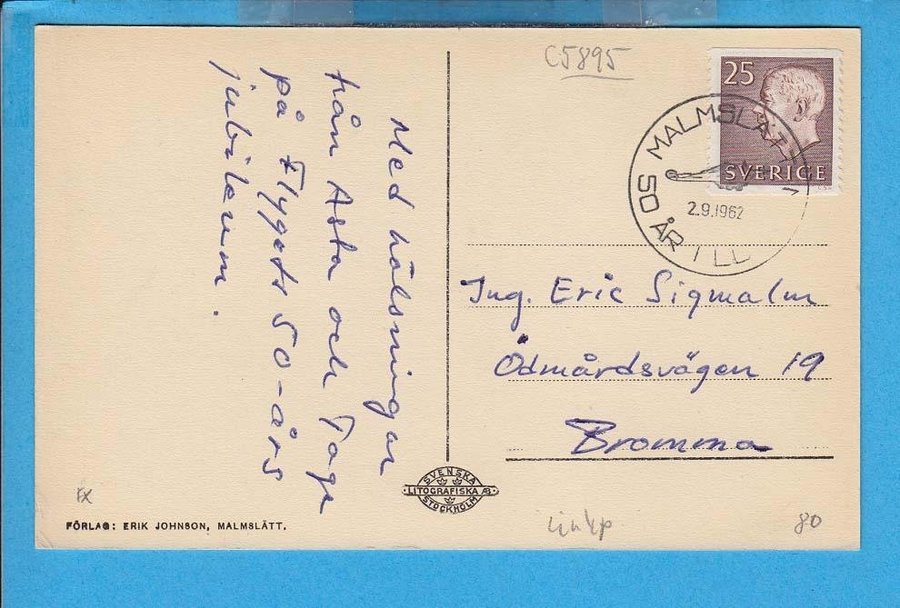 C5895
25
SVERIGE
MALMSLÄTT 1
2.9.1962
50 ÅR
Med hälsningar
från Asta och Tage
på Flygets 50-års
jubileum.
Ing. Eric Sigmalm
Ödmårdsvägen 19
Bromma
SVENSKA
LITOGRAFISKA AB
STOCKHOLM
FX
FÖRLAG: ERIK JOHNSON, MALMSLÄTT.
Linkp
80